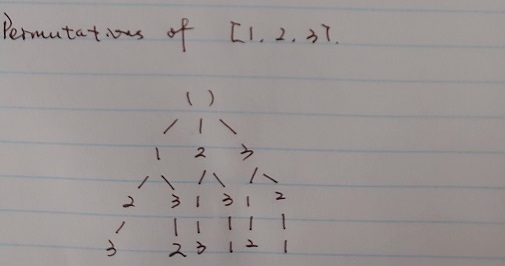 Permutations of [1, 2, 3].
( )
1 2 3
2 3 1 3 1 2
3 2 3 1 2 1